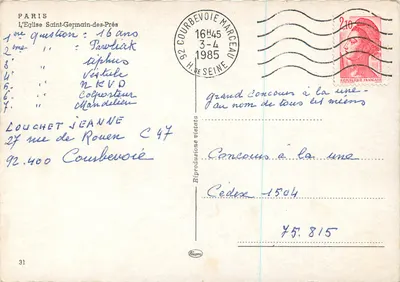 PARIS
L'Eglise Saint-Germain-des-Prés
1ère question : 16 ans
2ème " : Pawliak
3° " : Typhus
4° " : Vestale
5° " : NKVD
6° " : Colporteur
7° " : Mandelieu
LOUCHET JEANNE
27 rue de Rouen C 47
92.400 Courbevoie
31
Reproduction interdite
92 COURBEVOIE MARCEAU
16H45
3-4
1985
H. DE SEINE
2,10
REPUBLIQUE FRANCAISE
grand concours à la une -
au nom de tous les miens
Concours à la une
Cédex 1504
75.815